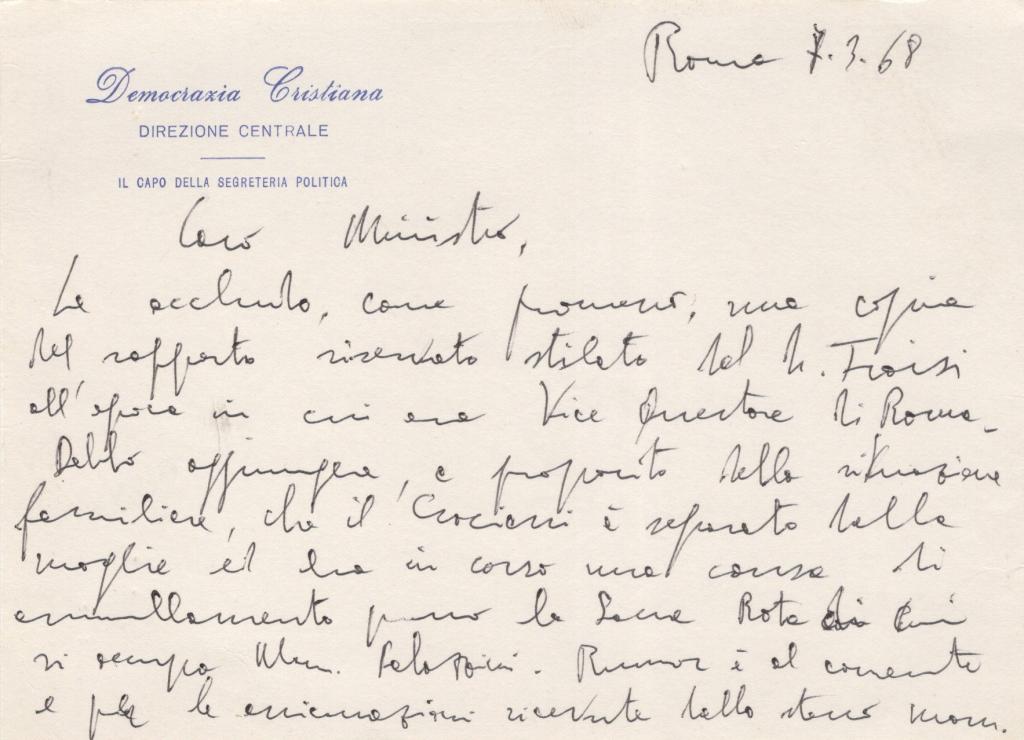 Roma 7.3.68
Democrazia Cristiana
DIREZIONE CENTRALE
IL CAPO DELLA SEGRETERIA POLITICA
Caro Ministro,
Le accludo, come promesso, una copia
del rapporto riservato stilato dal
all'epoca in cui era Vice Questore di Roma.
Debbo aggiungere, a proposito della situazione
familiare, che il Crociani è separato dalla
moglie ed ha in corso una causa di
annullamento presso la Sacra Rota di cui
si occupa Mons. Palazzini. Rumor è al corrente
e le assicurazioni ricevute dallo stesso mons.